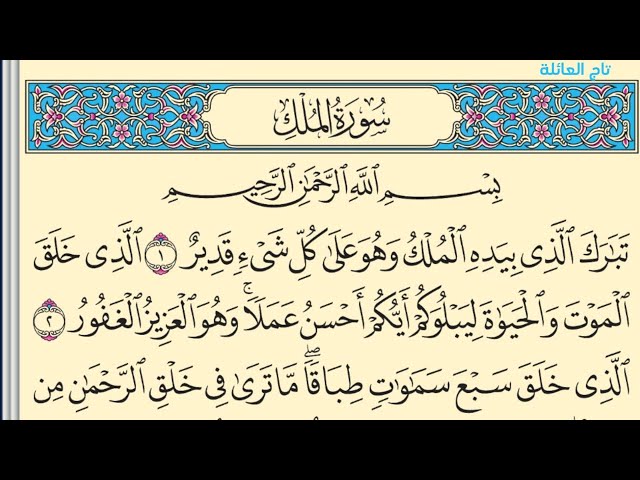 تاج العائلة
سُورَةُ المُلْكِ
بِسْمِ ٱللَّهِ ٱلرَّحْمَٰنِ ٱلرَّحِيمِ
تَبَٰرَكَ ٱلَّذِى بِيَدِهِ ٱلْمُلْكُ وَهُوَ عَلَىٰ كُلِّ شَىْءٍ قَدِيرٌ ١ ٱلَّذِى خَلَقَ
ٱلْمَوْتَ وَٱلْحَيَوٰةَ لِيَبْلُوَكُمْ أَيُّكُمْ أَحْسَنُ عَمَلًا ۚ وَهُوَ ٱلْعَزِيزُ ٱلْغَفُورُ ٢
ٱلَّذِى خَلَقَ سَبْعَ سَمَٰوَٰتٍ طِبَاقًا ۖ مَّا تَرَىٰ فِى خَلْقِ ٱلرَّحْمَٰنِ مِن